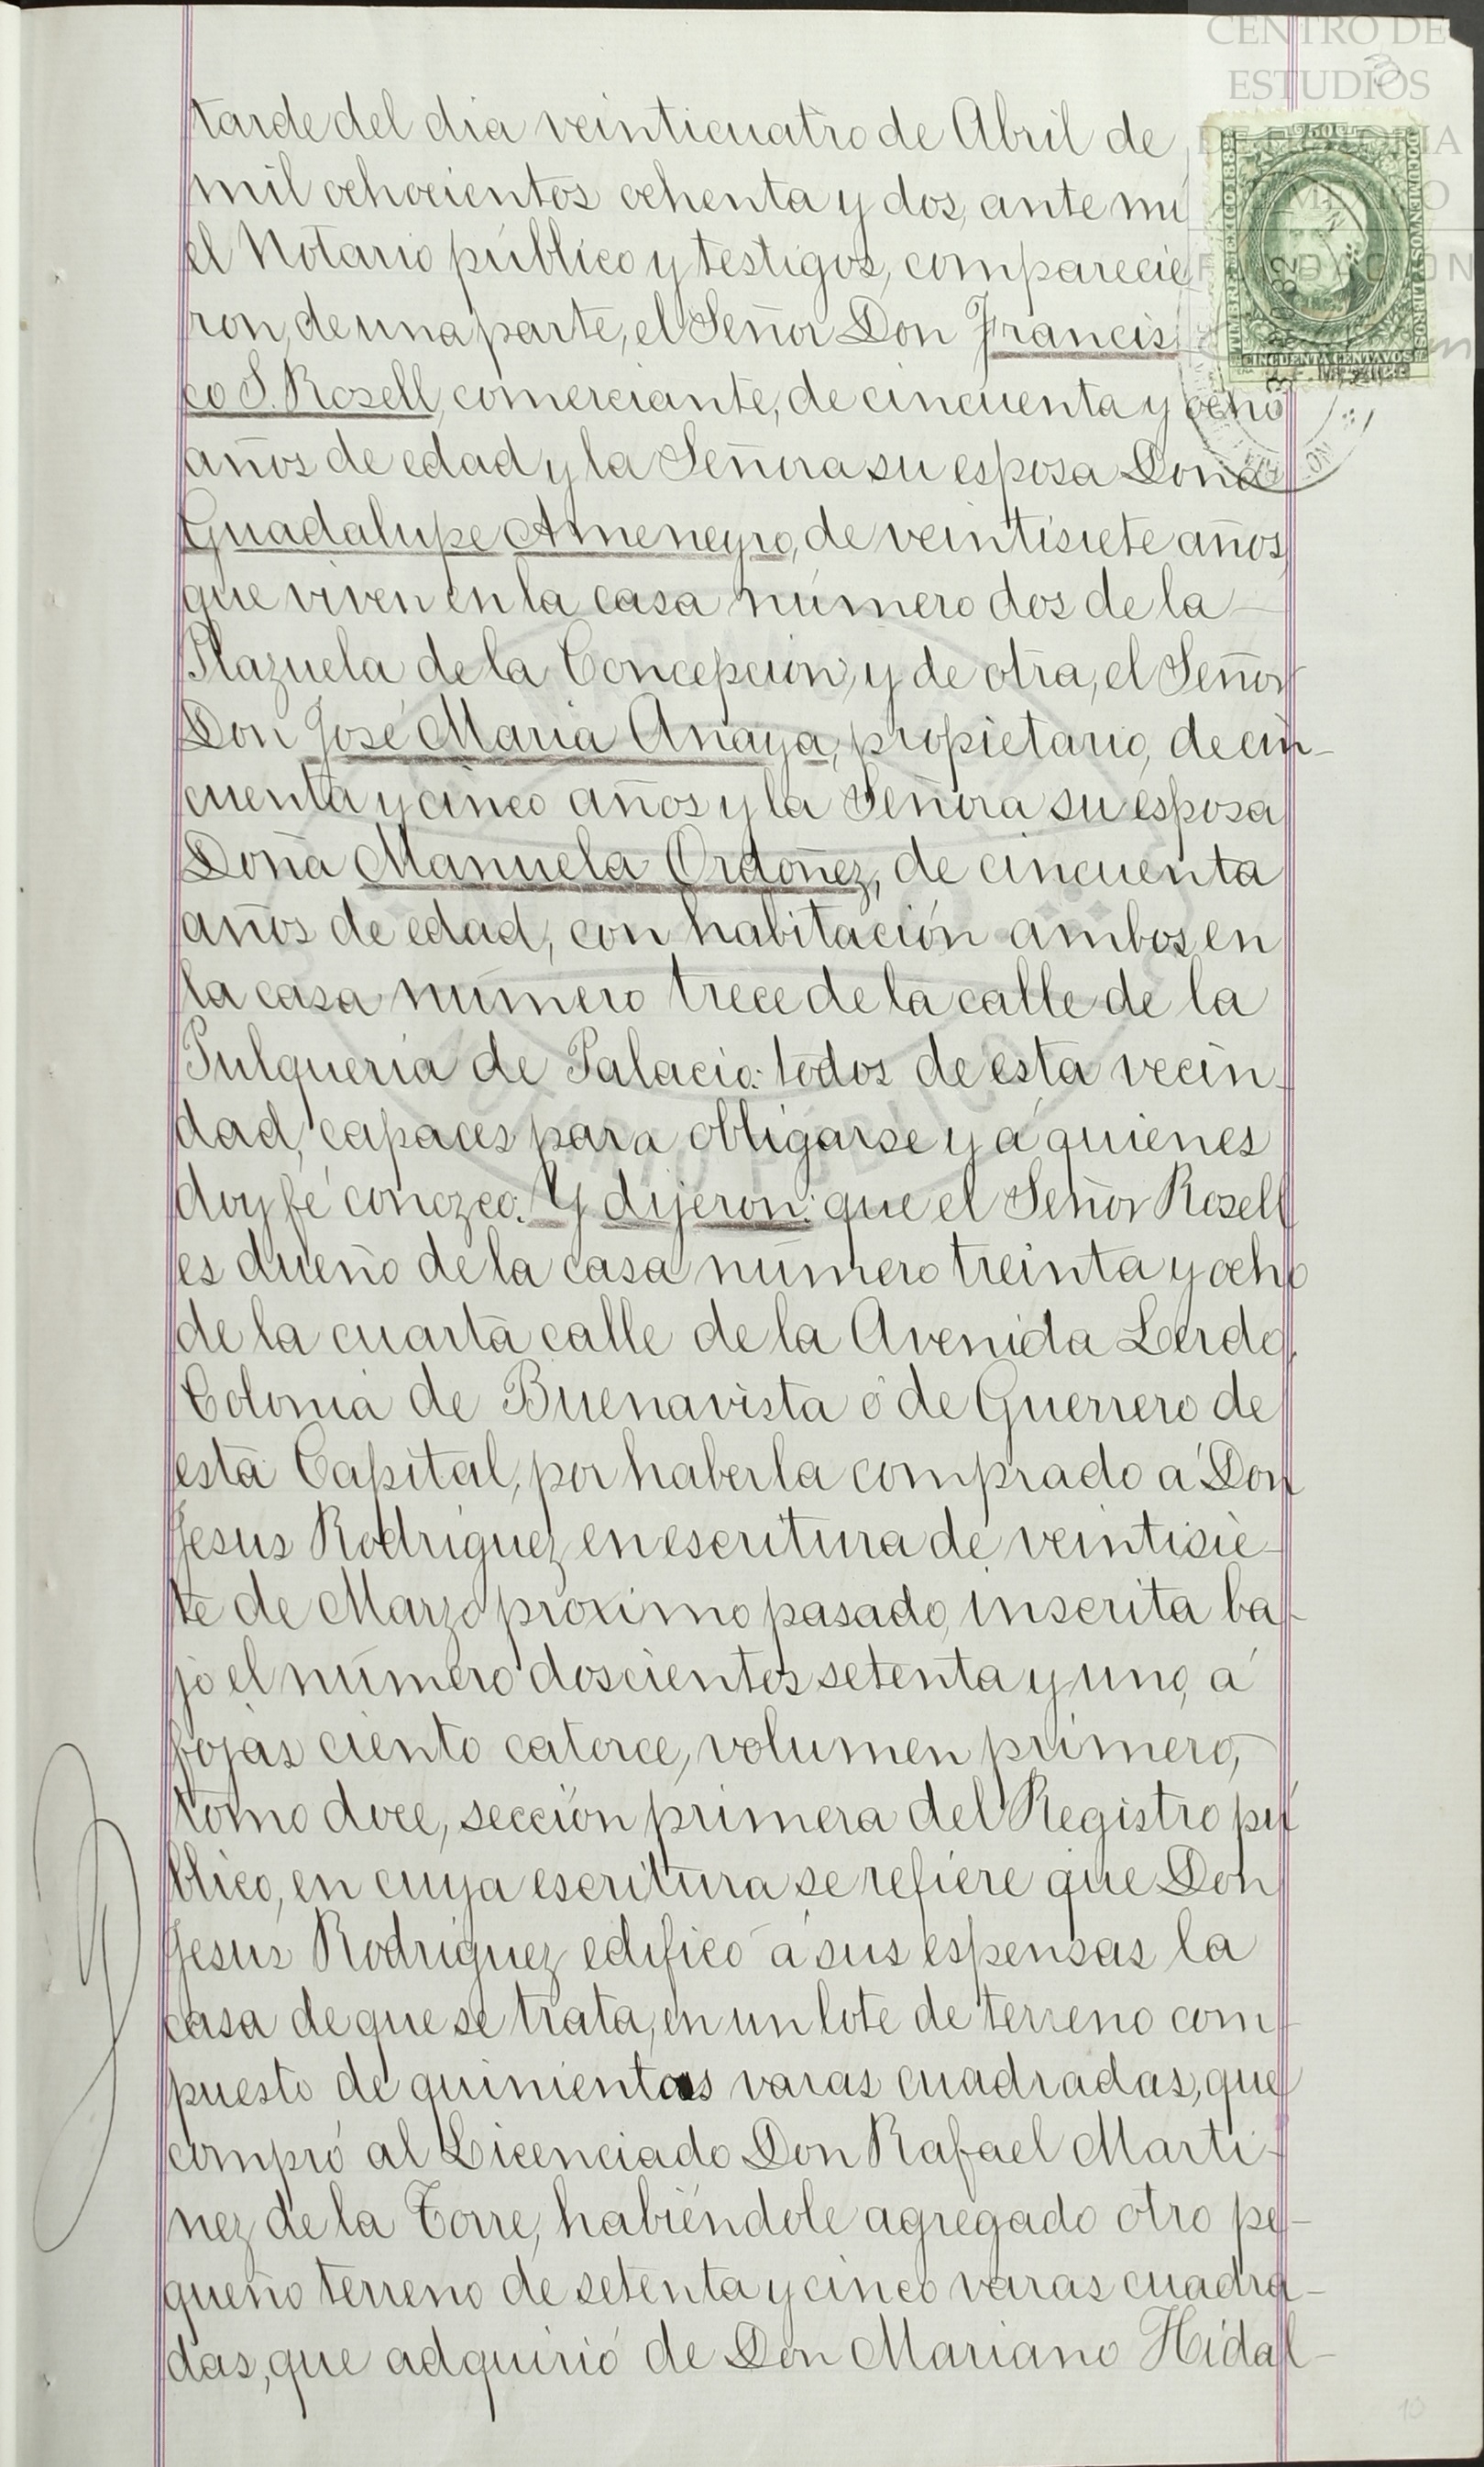 CENTRO DE
ESTUDIOS
3
tarde del dia veinticuatro de Abril de
mil ochocientos ochenta y dos, ante mi
el Notario público y testigos, comparecie
ron, de una parte, el Señor Don Francis
co S. Rosell, comerciante, de cincuenta y ocho
años de edad y la Señora su esposa Doña
Guadalupe Ameneyro, de veintisiete años
que viven en la casa número dos de la
Plazuela de la Concepcion, y de otra, el Señor
Don José Maria Anaya, propietario, de cin-
cuenta y cinco años y la Señora su esposa
Doña Manuela Ordoñez, de cincuenta
años de edad, con habitación ambos en
la casa número trece de la calle de la
Pulqueria de Palacio: todos de esta vecin-
dad, capaces para obligarse y á quienes
doy fé conozco. Y dijeron: que el Señor Rosell
es dueño de la casa número treinta y ocho
de la cuarta calle de la Avenida Lerdo,
Colonia de Buenavista ó de Guerrero de
esta Capital, por haberla comprado á Don
Jesus Rodriguez en escritura de veintisie-
te de Marzo próximo pasado, inscrita ba-
jo el número doscientos setenta y uno, á
fojas ciento catorce, volumen primero,
tomo doce, sección primera del Registro pú
blico, en cuya escritura se refiere que Don
Jesus Rodriguez edificó á sus espensas la
casa de que se trata, en un lote de terreno com-
puesto de quinientas varas cuadradas, que
compró al Licenciado Don Rafael Marti-
nez de la Torre, habiéndole agregado otro pe-
queño terreno de setenta y cinco varas cuadra-
das, que adquirió de Don Mariano Hidal-
TIMBRE MEXICO 1882
DOCUMENTOS Y LIBROS
CINCUENTA CENTAVOS
10